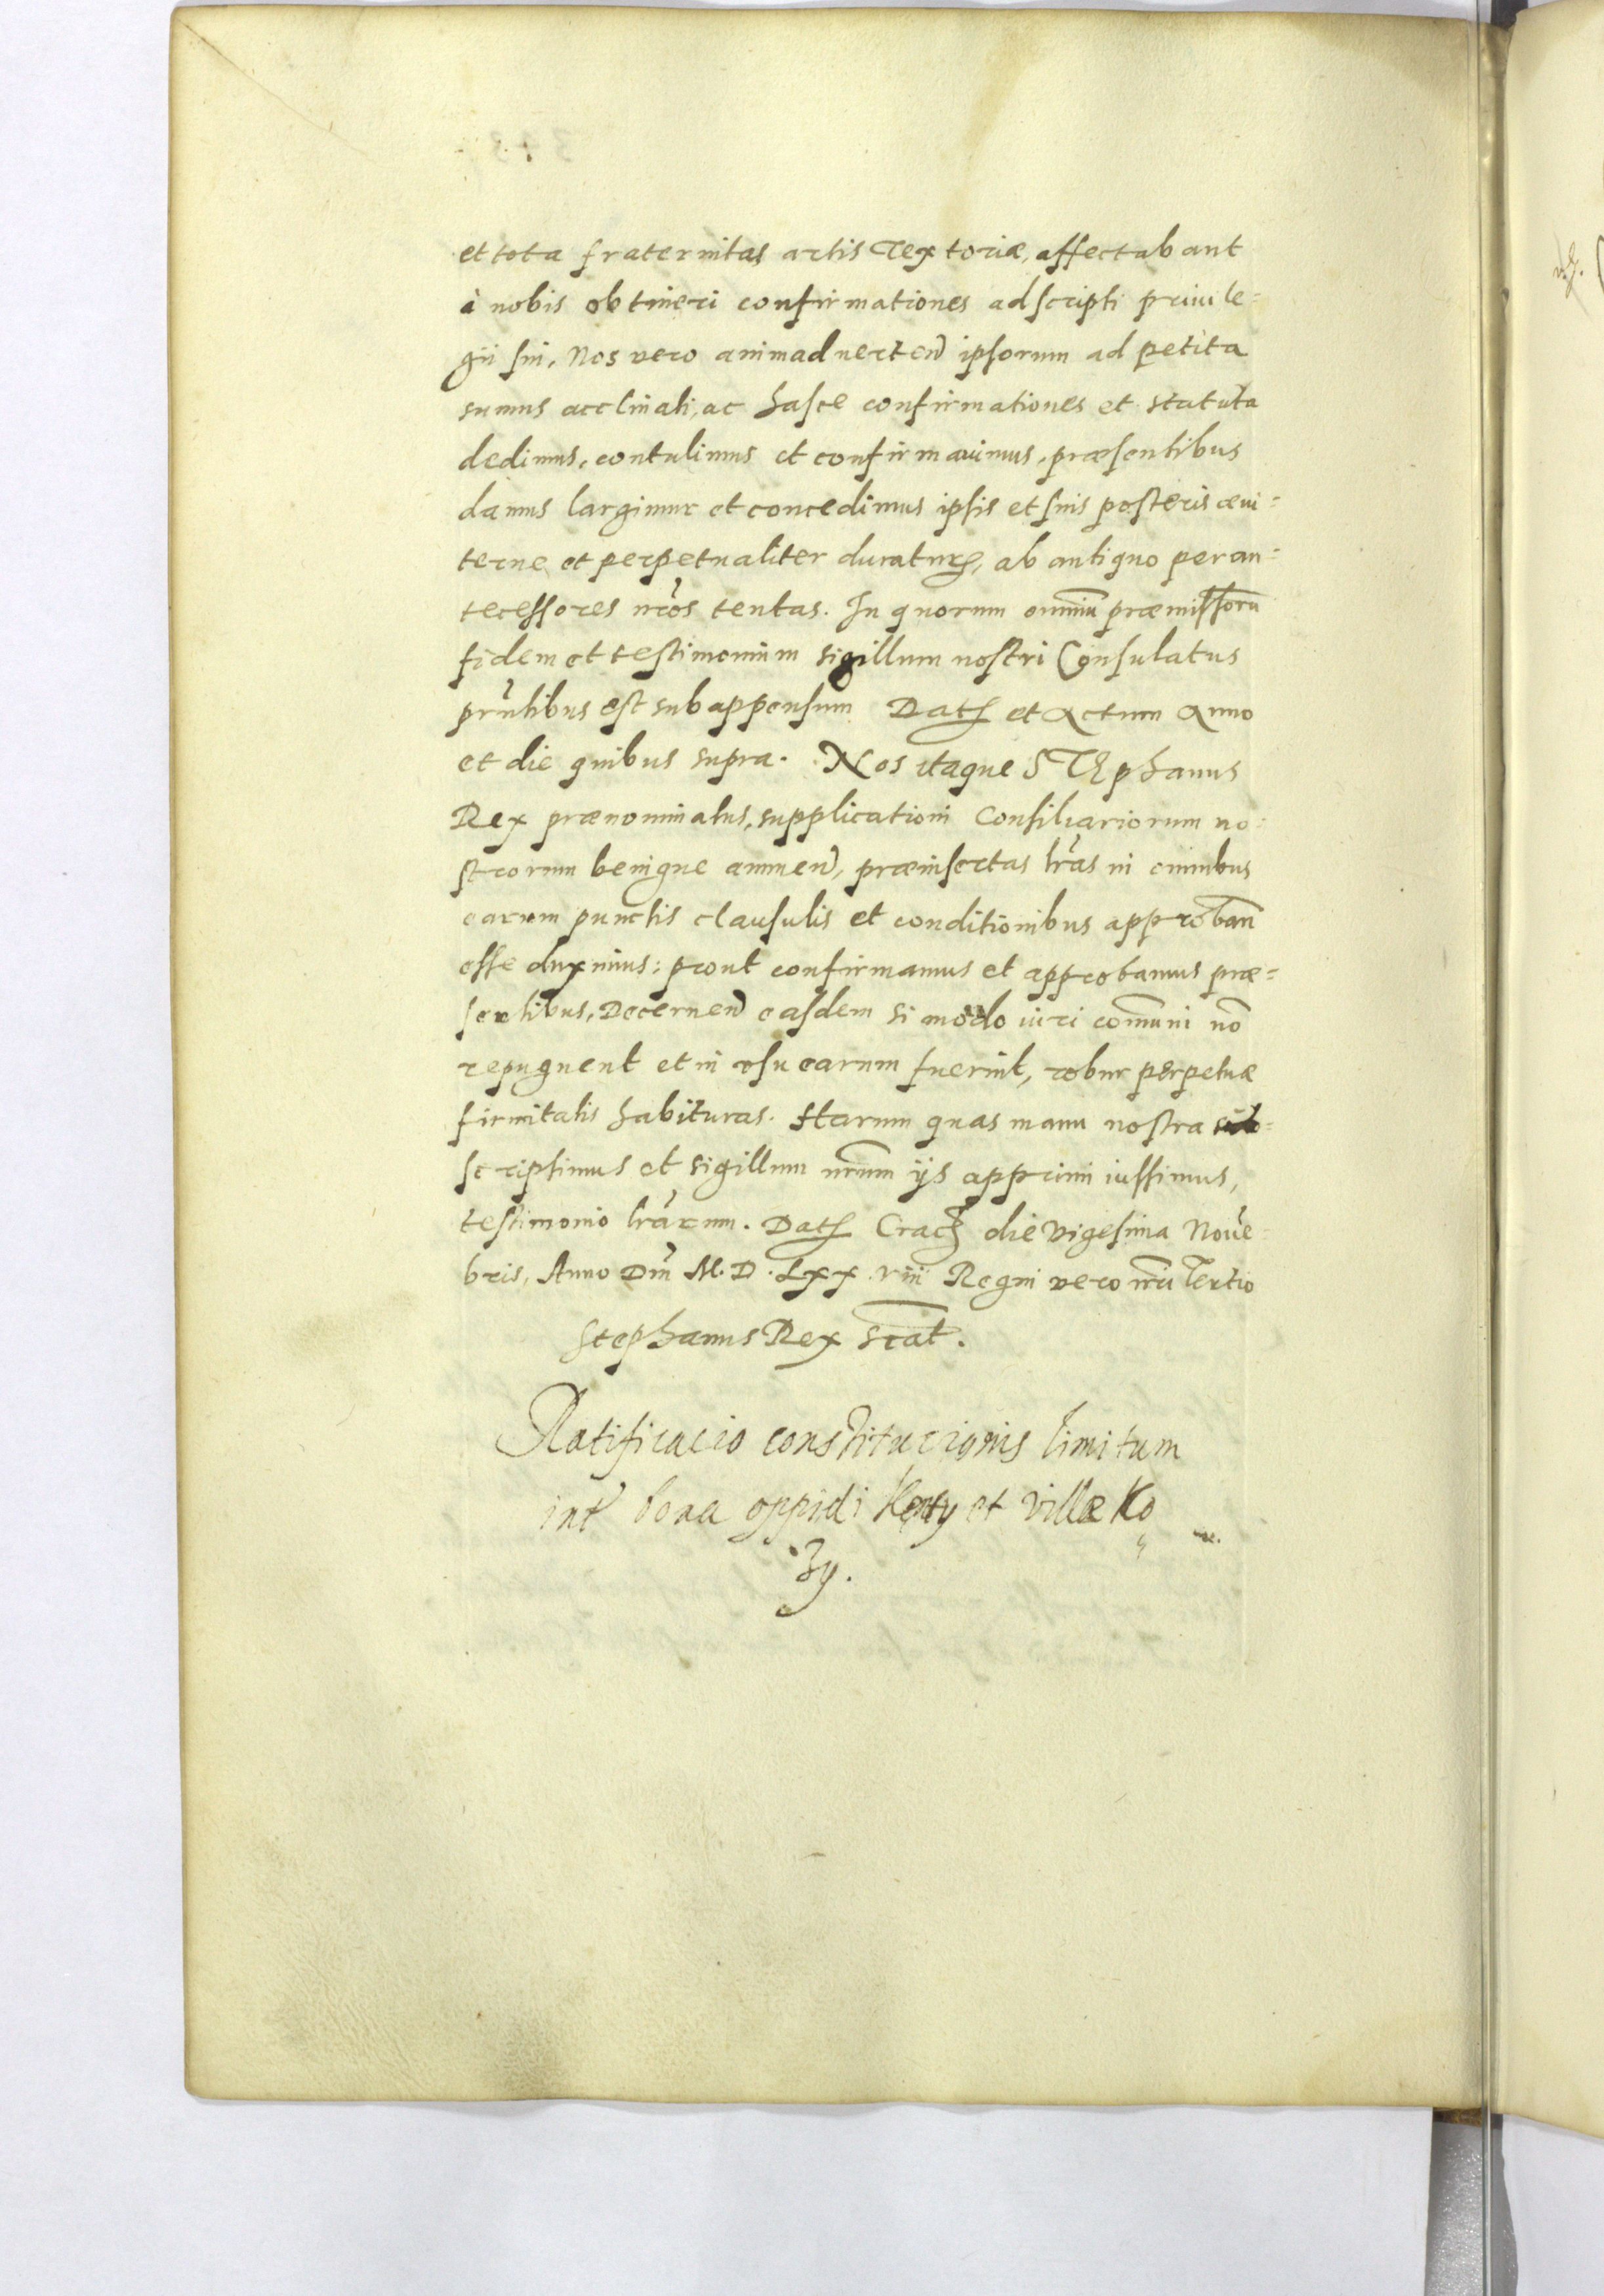 et tota fraternitas artis Textoriæ, affectabant
à nobis obtineri confirmationes adscripti priuile=
gii sui, Nos vero animaduerteñ ipsorum ad petita
sumus acclinati, ac hasce confirmationes et statuta
dedimus, contulimus et confirmauimus, præsentibus
damus largimur et concedimus ipsis et suis posteris æui=
terne et perpetualiter duratur, ab antiquo per an=
tecessores nr̃os tentas. In quorum omniũ præmissorũ
fidem et testimonium sigillum nostri Consulatus
prñtibus est subappensum Dat et Actum Anno
et die quibus supra. Nos itaque STEphanus
Rex prænominatus, supplicationi Consiliariorum no=
strorum benigne annueñ, præinsertas lr̃as in omnibus
earum punctis clausulis et conditionibus approbañ
esse duximus: prout confirmamus et approbamus præ=
sentibus, Decerneñ easdem si modo iuri com̃uni nõ
repugnent et in vsu earum fuerint, robur perpetuæ
firmitatis habituras. Harum quas manu nostra sub=
scripsimus et sigillum nr̃um ijs apprimi iussimus,
testimonio lr̃arum. Dat Crac die Vigesima Noue=
bris, Anno Dñi M.D.Lxx.viii Regni vero nr̃i Tertio
Stephanus Rex sc̃at.
Ratificacio constitucionis limitum
int bona oppidi Kenty et villæ Ko
zy.